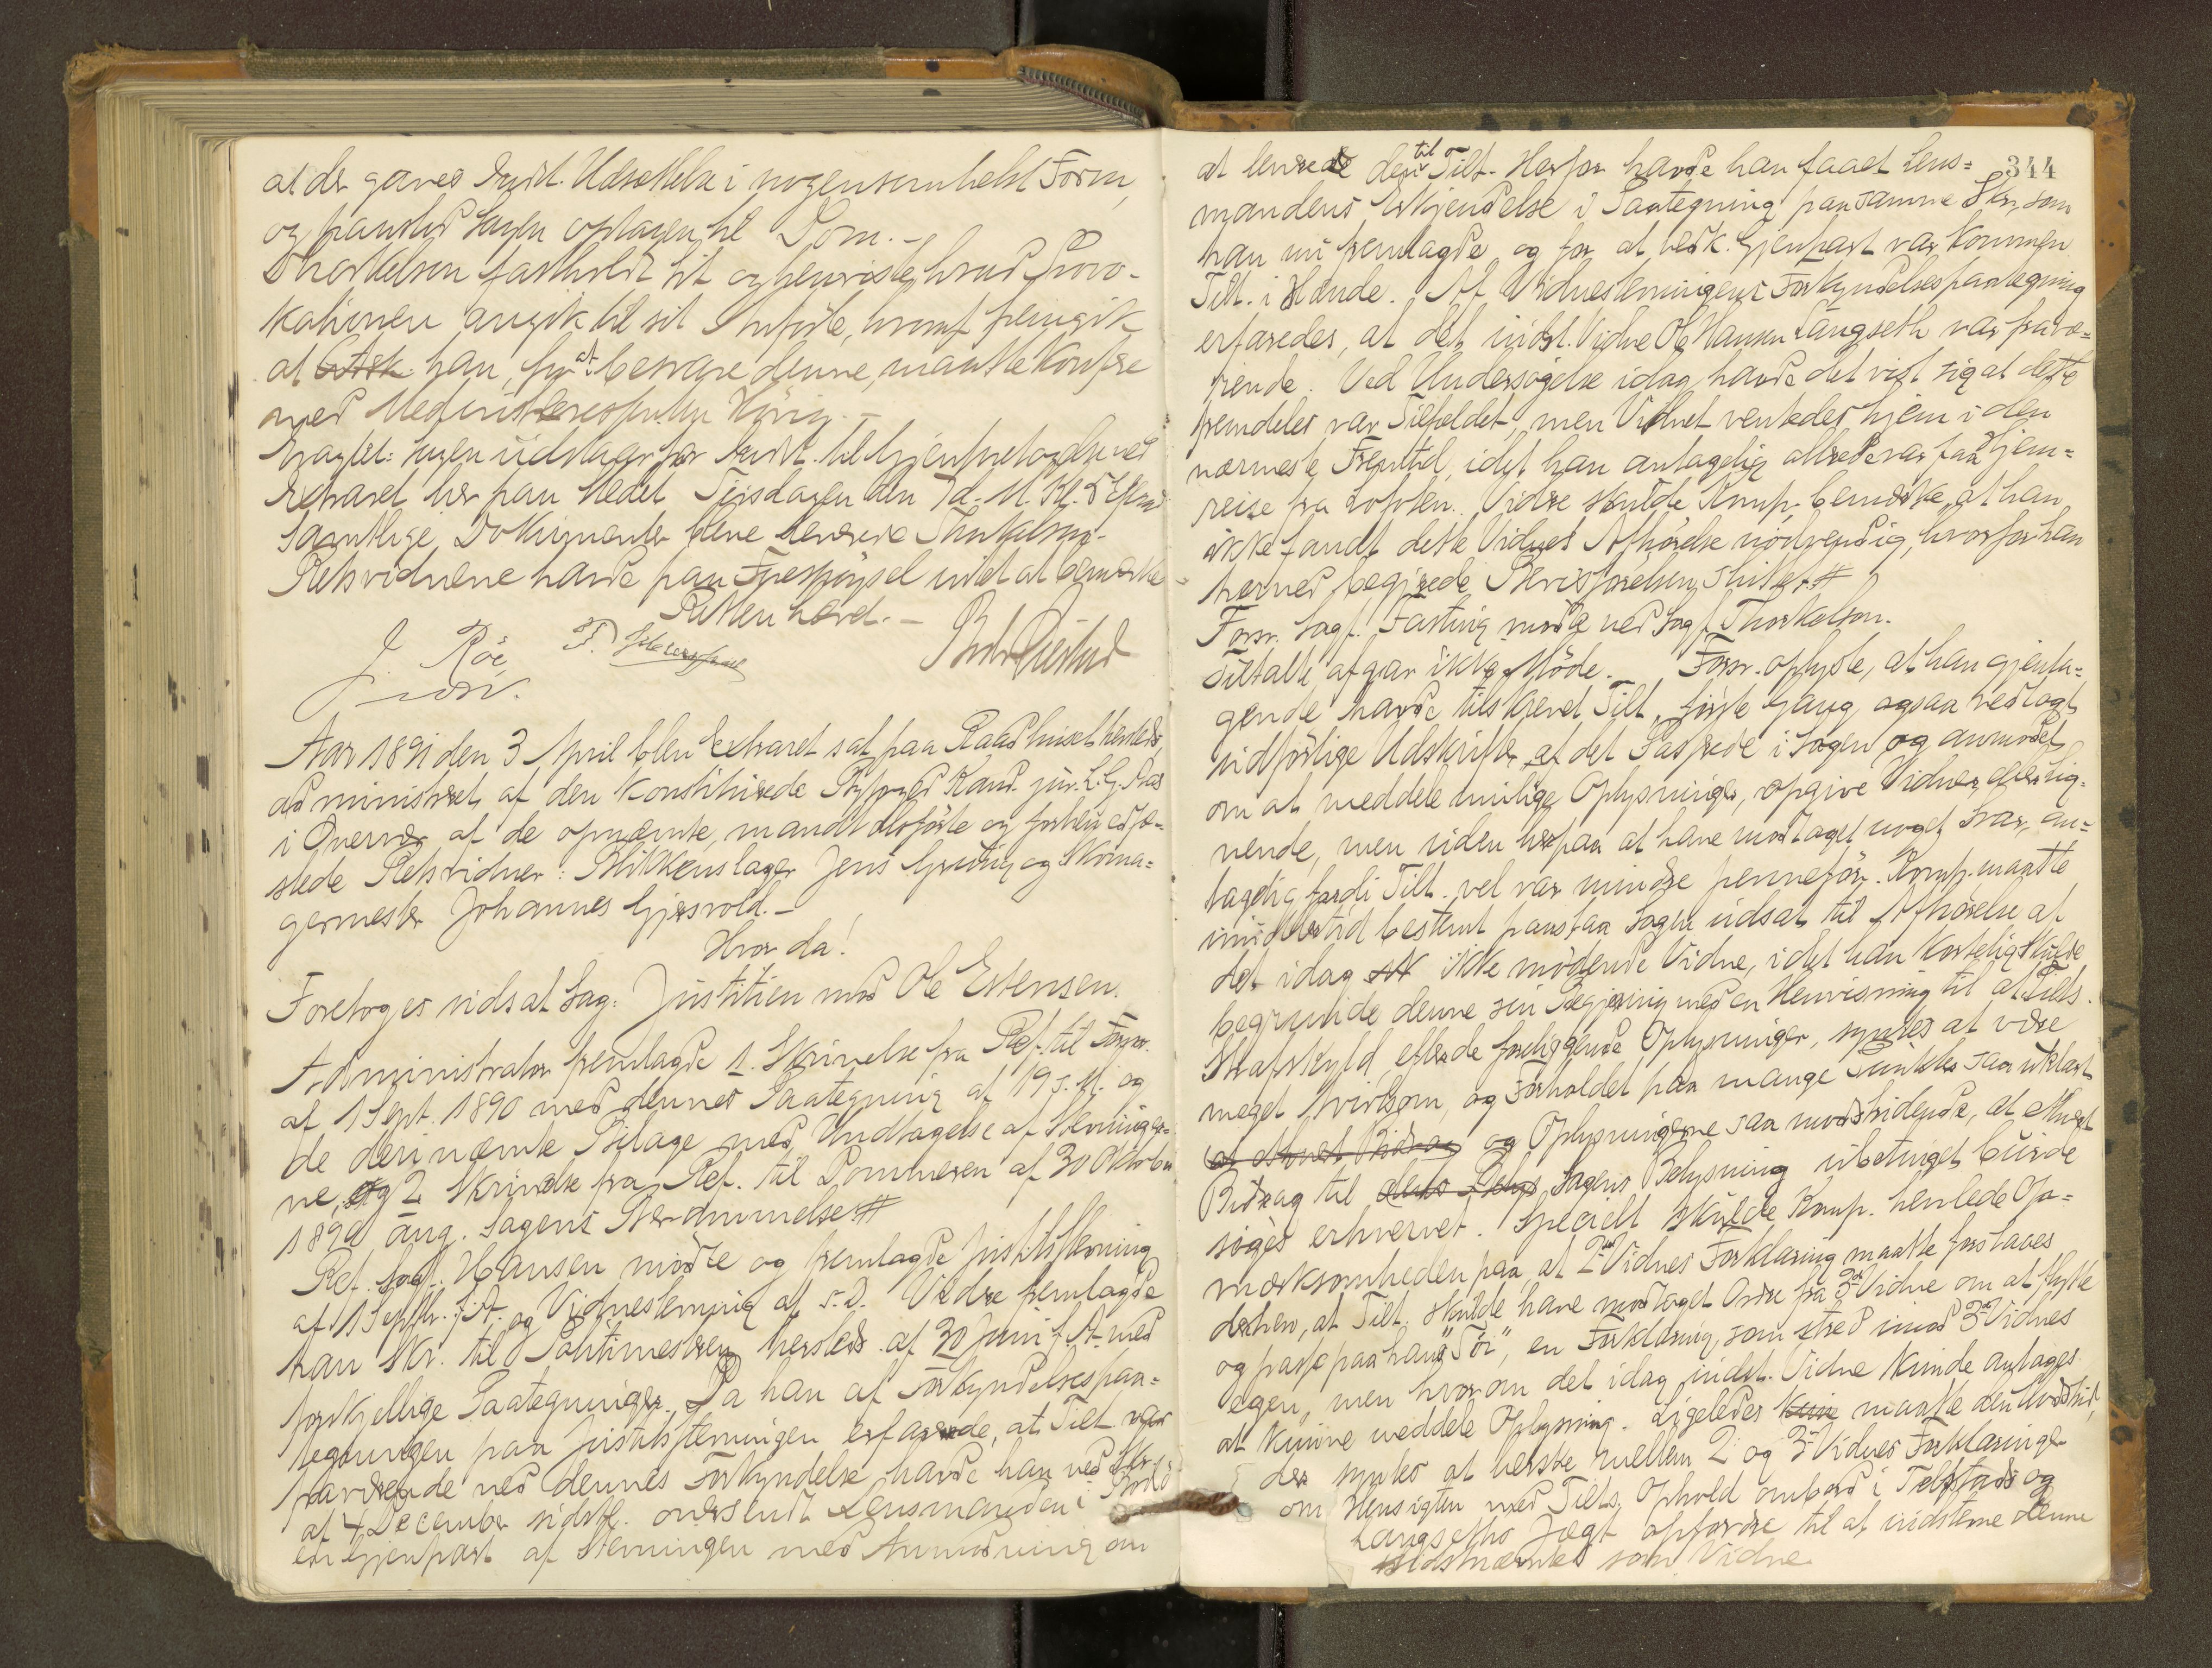 at der gaves Indst. Udsettelse i nogensomhelst Form,
og paastod Sagen optagen til Dom. –
Thorkelsen fastholdt sit og henviste hvad Provo-
kationen angik til sit Anførte, hvoraf fremgik
at han, for at besvare denne, maatte konferere
med
Eragtet: Sagen udstaar for Indst. til Gjenforetagelse ved
Extraret her paa Stedet Tirsdagen den 7 d. M. Kl. 5 Efterm
Samtlige Dokumenter bleve leverede Thorkelsen.
Retsvidnene havde paa Forespørgsel intet at bemærke
Retten hævet. –
J. Röe
Aar 1891 den 3 April blev Extraret sat paa Raadhuset hersteds,
administreret af den konstituerede Byfoged Kand. jur. L. G.
i Overvær af de opnævnte, mandtalsførte og forhen edfæ-
stede Retsvidner: Blikkenslager Jens Grüthy og Skoma-
germester Johannes Gjersvold. –
Hvor da!
Foretoges udsat Sag: Justitien mod Ole Estensen.
Administrator fremlagde 1. Skrivelse fra Ref. til Forsv.
af 1 Sept. 1890 med dennes Paategning af 19 s. M. og
de deri nævnte Bilage med Undtagelse af Stevninge-
ne, og 2 Skrivelse fra Ref. til Dommeren af 30 Oktober
1890 ang. Sagens Berammelse #
Ref. Sagf. Hansen mødte og fremlagde Justitsstevning
af 1 Septbr. f. A. og Vidnestevning af s. D. Videre fremlagde
han Skr. til Politimesteren hersteds af 30 Juni f. A. med
forskjellige Paategninger. Da han af Forkyndelsespaa-
tegningen paa Justitsstevningen erfarede, at Tilt. var
fraværende ved dennes Forkyndelse havde han ved Skr.
af 4 December sidstl. oversendt Lensmanden i Bodø
en Gjenpart af Stevningen med Anmodning om
344
at levere den til Tilt. Herfor havde han faaet Lens-
mandens Erkjendelse i Paategning paa samme Skr, som
han nu fremlagde og for at vedk. Gjenpart var kommen
Tilt. i Hænde. Af Vidnestevningens Forkyndelsespaategning
erfaredes, at det indst. Vidne Ole Hansen Langseth var fravæ-
rende. Ved Undersøgelse idag havde det vist sig at dette
fremdeles var Tilfældet, men Vidnet ventedes hjem i den
nærmeste Fremtid, idet han antagelig allerede var paa Hjem-
reise fra Lofoten. Videre skulde Komp. bemærke, at han
ikke fandt dette Vidnes Afhørelse nødvendig, hvorfor han
hermed begjærede Bevisførelsen sluttet #
Forsv. Sagf. Fasting mødte ved Sagf Thorkelsen.
Tiltalte afgav ikke Møde. – Forsv. oplyste, at han gjenta-
gende havde tilskrevet Tilt, første Gang ogsaa vedlagt
vidtløftige Udskrifter af det Passerede i Sagen og anmodet
om at meddele mulige Oplysninger, opgive Vidner og lig-
nende, men uden herpaa at have modtaget noget Svar, an-
tagelig fordi Tilt. vel var mindre penneför. Komp. maatte
imidlertid bestemt paastaa Sagen udsat til Afhørelse af
det idag ikke mødende Vidne, idet han kortelig skulde
begrunde denne sin Begjæring med en Henvisning til at Tilts.
Strafskyld, efter de foreliggende Oplysninger, syntes at være
meget tvivlsom, og Forholdet paa mange Punkter saa uklart
og Oplysningerne saa modstridende, at ethvert
Bidrag til Sagens Belysning ubetinget burde
søges erhvervet. Specielt skulde Komp. henlede Op-
mærksomheden paa, at 2det Vidnes Forklaring maatte forstaaes
derhen, at Tilt. skulde have modtaget Ordre fra 3die Vidne om at flytte
og passe paa hans "Tøi", en Forklaring, som stred imod 3die Vidnes
egen, men hvorom det idag indst. Vidne kunde antages
at kunne meddele Oplysning. Ligeledes maatte den Modstrid,
der syntes at herske mellem 2 og 3 Vidnes Forklaringer
om Hensigten med Tilts. Ophold ombord i Telstads og
Langseths Jægt opfordre til at indstevne denne
sidstnævnte som Vidne